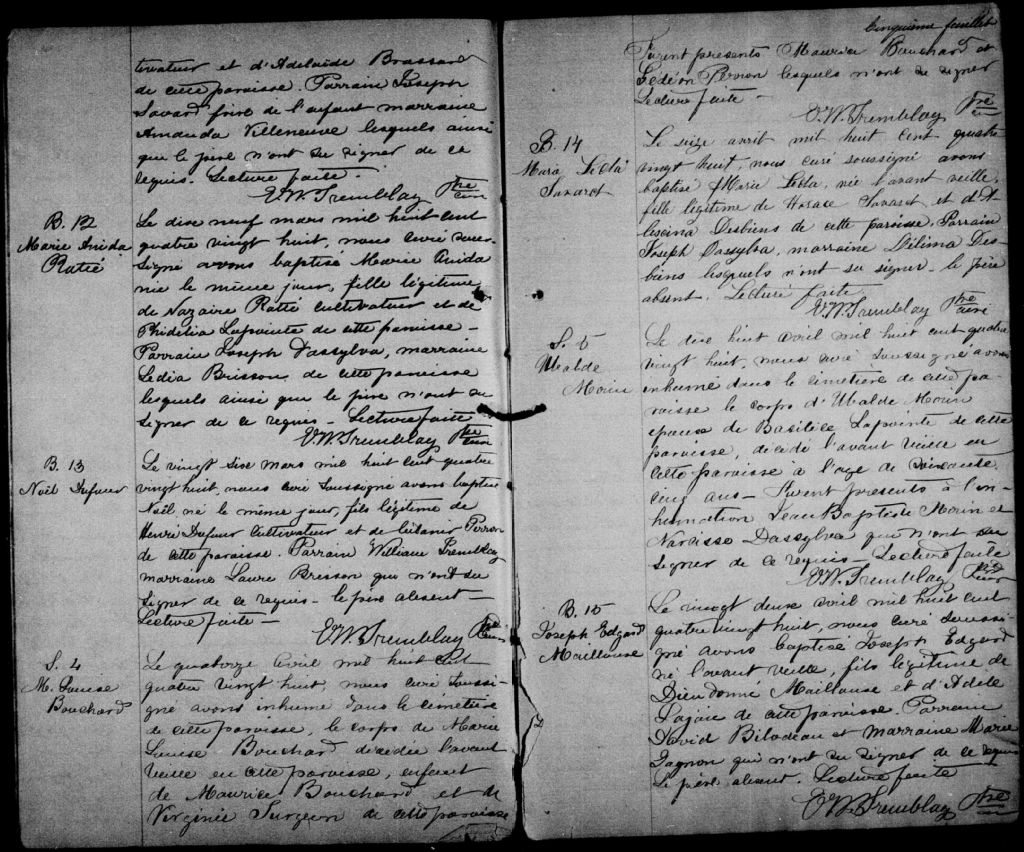 tivateur et d'Adelaïde Brassard
de cette paroisse. Parrain Joseph
Savard frère de l'enfant marraine
Amanda Villeneuve lesquels ainsi
que le père n'ont su signer de ce
requis. Lecture faite.
E.W. Tremblay Ptre
curé
B. 12
Marie Anida
Ratté
Le dix neuf mars mil huit cent
quatre vingt huit, nous curé sous-
signé avons baptisé Marie Anida
née le même jour, fille légitime
de Nazaire Ratté cultivateur et de
Phidelia Lapointe de cette paroisse –
Parrain Joseph Dassylva, marraine
Ledia Brisson de cette paroisse
lesquels ainsi que le père n'ont su
signer de ce requis – Lecture faite
E.W. Tremblay Ptre
curé
B. 13
Noël Dufour
Le vingt six mars mil huit cent quatre
vingt huit, nous curé soussigné avons baptisé
Noël né le même jour, fils légitime de
Henri Dufour cultivateur et de Perron
de cette paroisse. Parrain William Tremblay
marraine Laure Brisson qui n'ont su
signer de ce requis – le père absent –
Lecture faite –
E.W. Tremblay Ptre
curé
S. 4
M. Louise
Bouchard
Le quatorze avril mil huit cent
quatre vingt huit, nous curé soussi-
gné avons inhumé dans le cimetière
de cette paroisse, le corps de Marie
Louise Bouchard décédée l'avant
veille en cette paroisse, enfant
de Maurice Bouchard et de
Virginie Turgeon de cette paroisse
Cinquième feuillet
Furent présents Maurice Bouchard et
Gédéon Perron lesquels n'ont su signer
Lecture faite –
E.W. Tremblay Ptre
curé
B. 14
Maria Léda
Savard
Le seize avril mil huit cent quatre
vingt huit nous curé soussigné avons
baptisé Maria Léda, née l'avant veille,
fille légitime de Horace Savard et d'A-
Desbiens de cette paroisse. Parrain
Joseph Dassylva, marraine Délima Des-
biens lesquels n'ont su signer – le père
absent. Lecture faite.
E.W. Tremblay Ptre
curé
S. 5
Ubalde
Morin
Le dix huit avril mil huit cent quatre
vingt huit, nous curé soussigné avons
inhumé dans le cimetière de cette pa-
roisse le corps d'Ubalde Morin
époux de Basilice Lapointe de cette
paroisse, décédé l'avant veille en
cette paroisse à l'age de soixante
cinq ans – Furent présents à l'in-
humation Jean Baptiste Morin et
Narcisse Dassylva qui n'ont su
signer de ce requis – Lecture faite
E.W. Tremblay Ptre
curé
B. 15
Joseph Edgard
Maillouse
Le vingt deux avril mil huit cent
quatre vingt huit, nous curé soussi-
gné avons baptisé Joseph Edgard
né l'avant veille, fils légitime de
Dieudonné Maillouse et d'Adèle
Lajoie de cette paroisse. Parrain
David Bilodeau et marraine Marie
Gagnon qui n'ont su signer de ce requis
le père absent. Lecture faite
E.W. Tremblay Ptre
curé